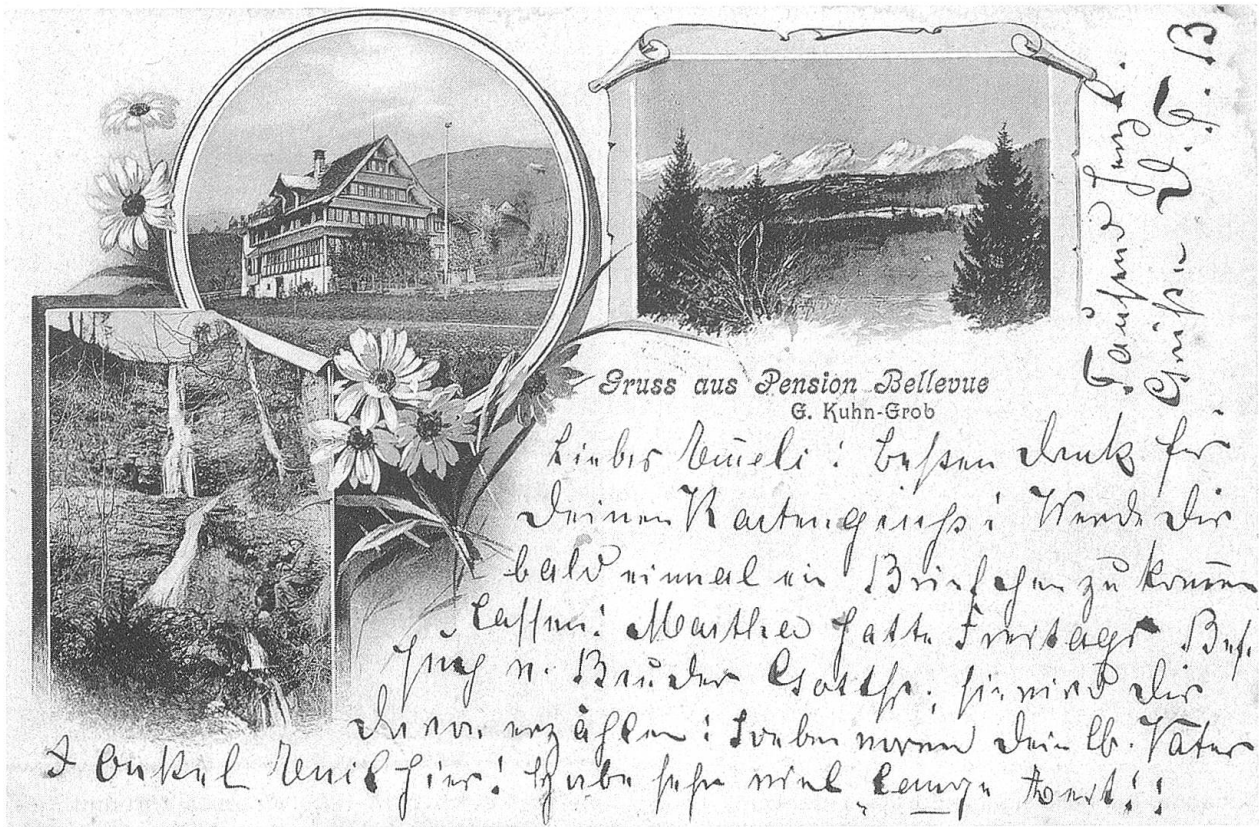 Gruss aus Pension Bellevue
G. Kuhn-Grob
Liebes Emeli! Besten Dank für
Deinen Kartengruss! Werde Dir
bald einmal ein Briefchen zukommen
lassen! Martha hatte Freitags Be-
such v. Bruder Gotth., sie wird Dir
davon erzählen! Soeben waren Dein lb. Vater
& Onkel Emil hier! Habe sehr viel „lange Zeit"!!
Tausend herzl.
Grüsse